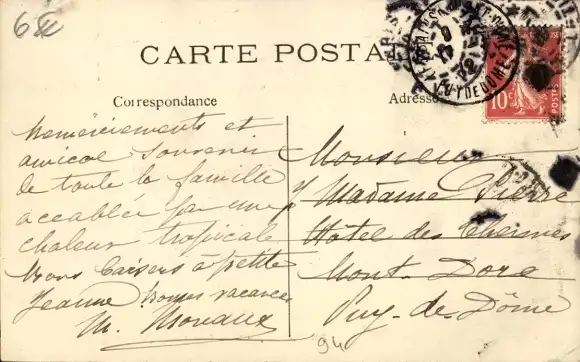 6
CARTE POSTALE
Correspondance
Adresse
Remerciements et
amical souvenir
de toute la famille
accablée par une
chaleur tropicale
Bons baisers à petite
Jeanne bonnes vacances
M. Moreaux
Monsieur
Madame Pierre
Hôtel des Thermes
Mont-Dore
Puy-de-Dôme
10c
POSTES
PUY DE DOME
94